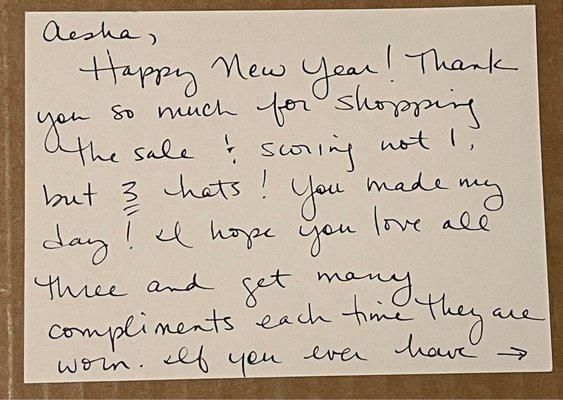 Aesha,
Happy New Year! Thank
you so much for shopping
the sale & scoring not 1,
but 3 hats! You made my
day! I hope you love all
three and get many
compliments each time they are
worn. If you ever have →